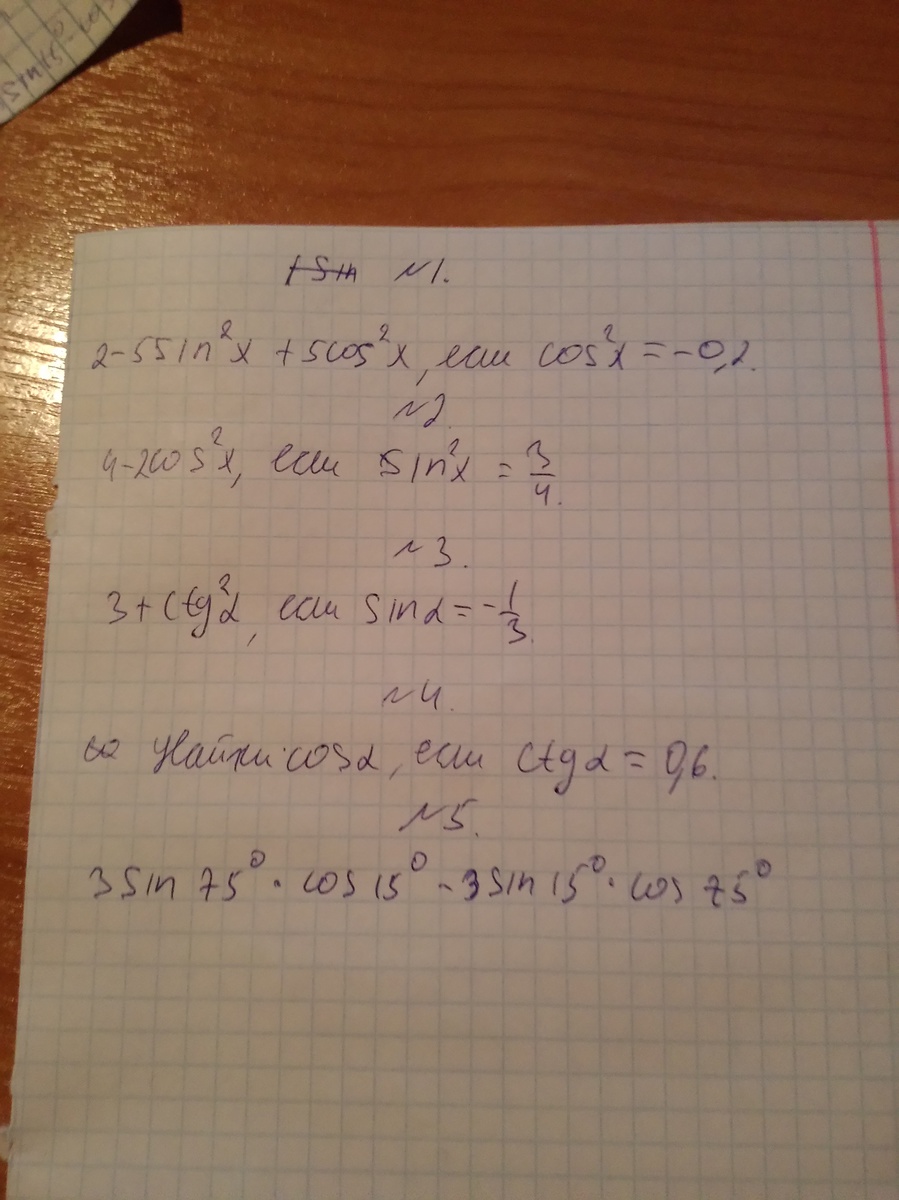 sin15°-cos
N1.
2-5sin²x + 5cos²x, если cos²x = -0,2.
N2.
4-2cos²x, если sin²x = 3/4.
N3.
3 + ctg²α, если sinα = -1/3.
N4.
Найти cosα, если ctgα = 0,6.
N5.
3sin75°·cos15° - 3sin15°·cos75°